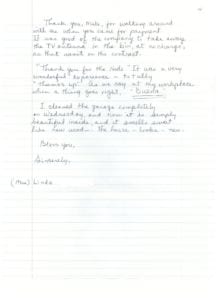 Thank you, Mike, for walking around
with me when you came for payment.
It was good of the company to take away
the TV antenna in the bin, at no charge,
as that wasn't in the contract.
"Thank you for the Node" It was a very
wonderful experience - totally
"Thumbs up" As we say at my workplace
when a thing goes right,
I cleaned the garage completely
on Wednesday, and now it is simply
beautiful inside, and it smells sweet
like new wood - the house - looks - new.
Bless you,
Sincerely,
(Mrs) Linda